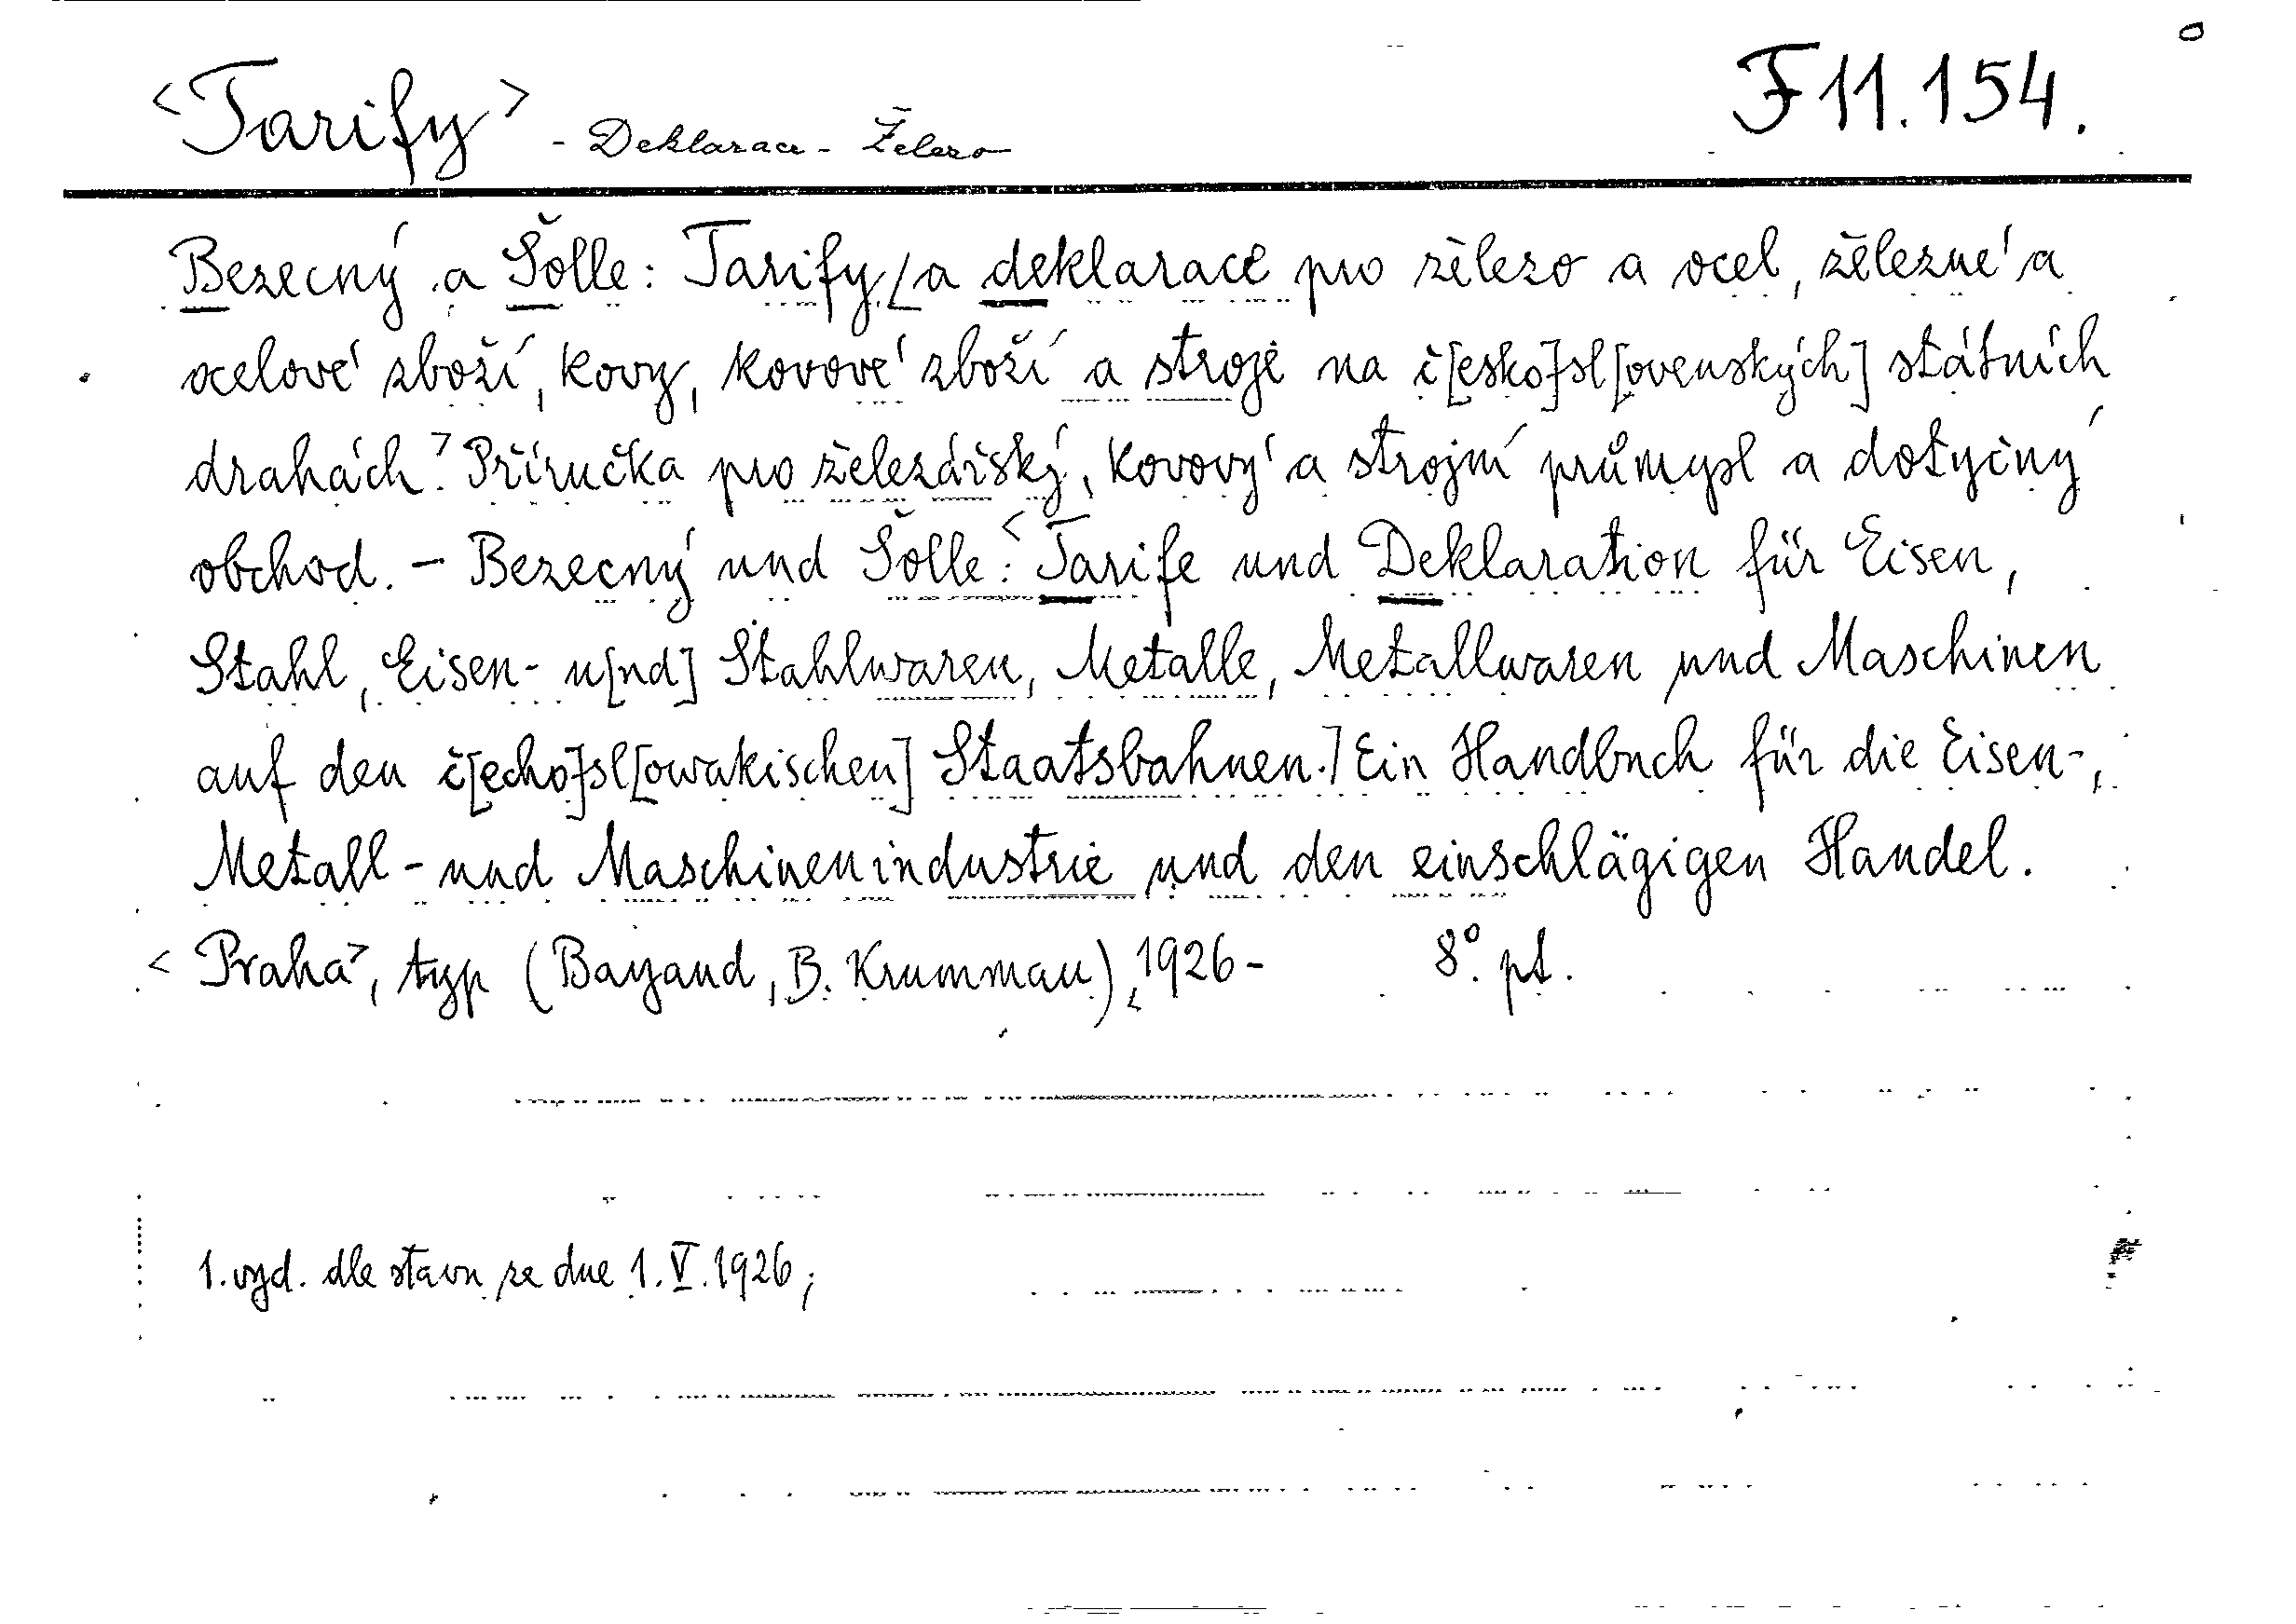 <Tarify> - Deklarace - Železo F 11.154.
Bezecný a Šolle: Tarify [a deklarace pro železo a ocel, železné a
ocelové zboží, kovy, kovové zboží a stroje na č[esko]sl[ovenských] státních
drahách.> Příručka pro železářský, kovový a strojní průmysl a dotyčný
obchod. - Bezecný und Šolle: <Tarife und Deklaration für Eisen,
Stahl, Eisen- u[nd] Stahlwaren, Metalle, Metallwaren und Maschinen
auf den č[echo]sl[owakischen] Staatsbahnen.] Ein Handbuch für die Eisen-,
Metall- und Maschinenindustrie und den einschlägigen Handel.
<Praha>, typ (Bayand, B. Krummau), <1926- 8°. pt.
1. vyd. dle stavu ze dne 1. V. 1926;